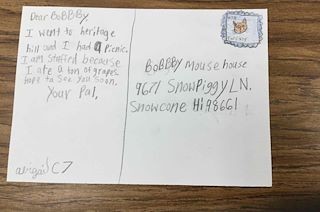 Dear BoBBBy,
I went to heritage
hill and I had a Picnic.
I am stuffed because
I ate a ton of grapes
hope to see you soon.
Your Pal,
abigail C7
BoBBBy mouse house
9671 SnowPiggy LN.
Snowcone Hi 98661